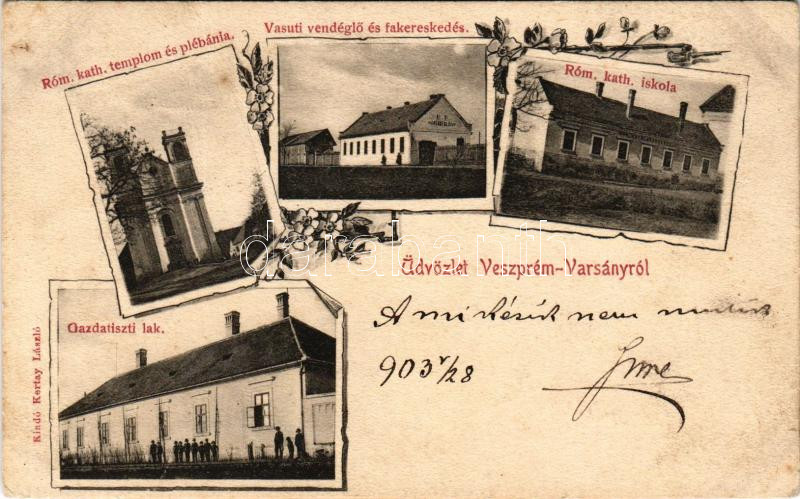 Vasuti vendéglő és fakereskedés.
Róm. kath. templom és plébánia.
Róm. kath. iskola
Üdvözlet Veszprém-Varsányról
darabanth
Gazdatiszti lak.
A mi késik nem mulik
903 V/28
Imre
Kiadó Kertay László